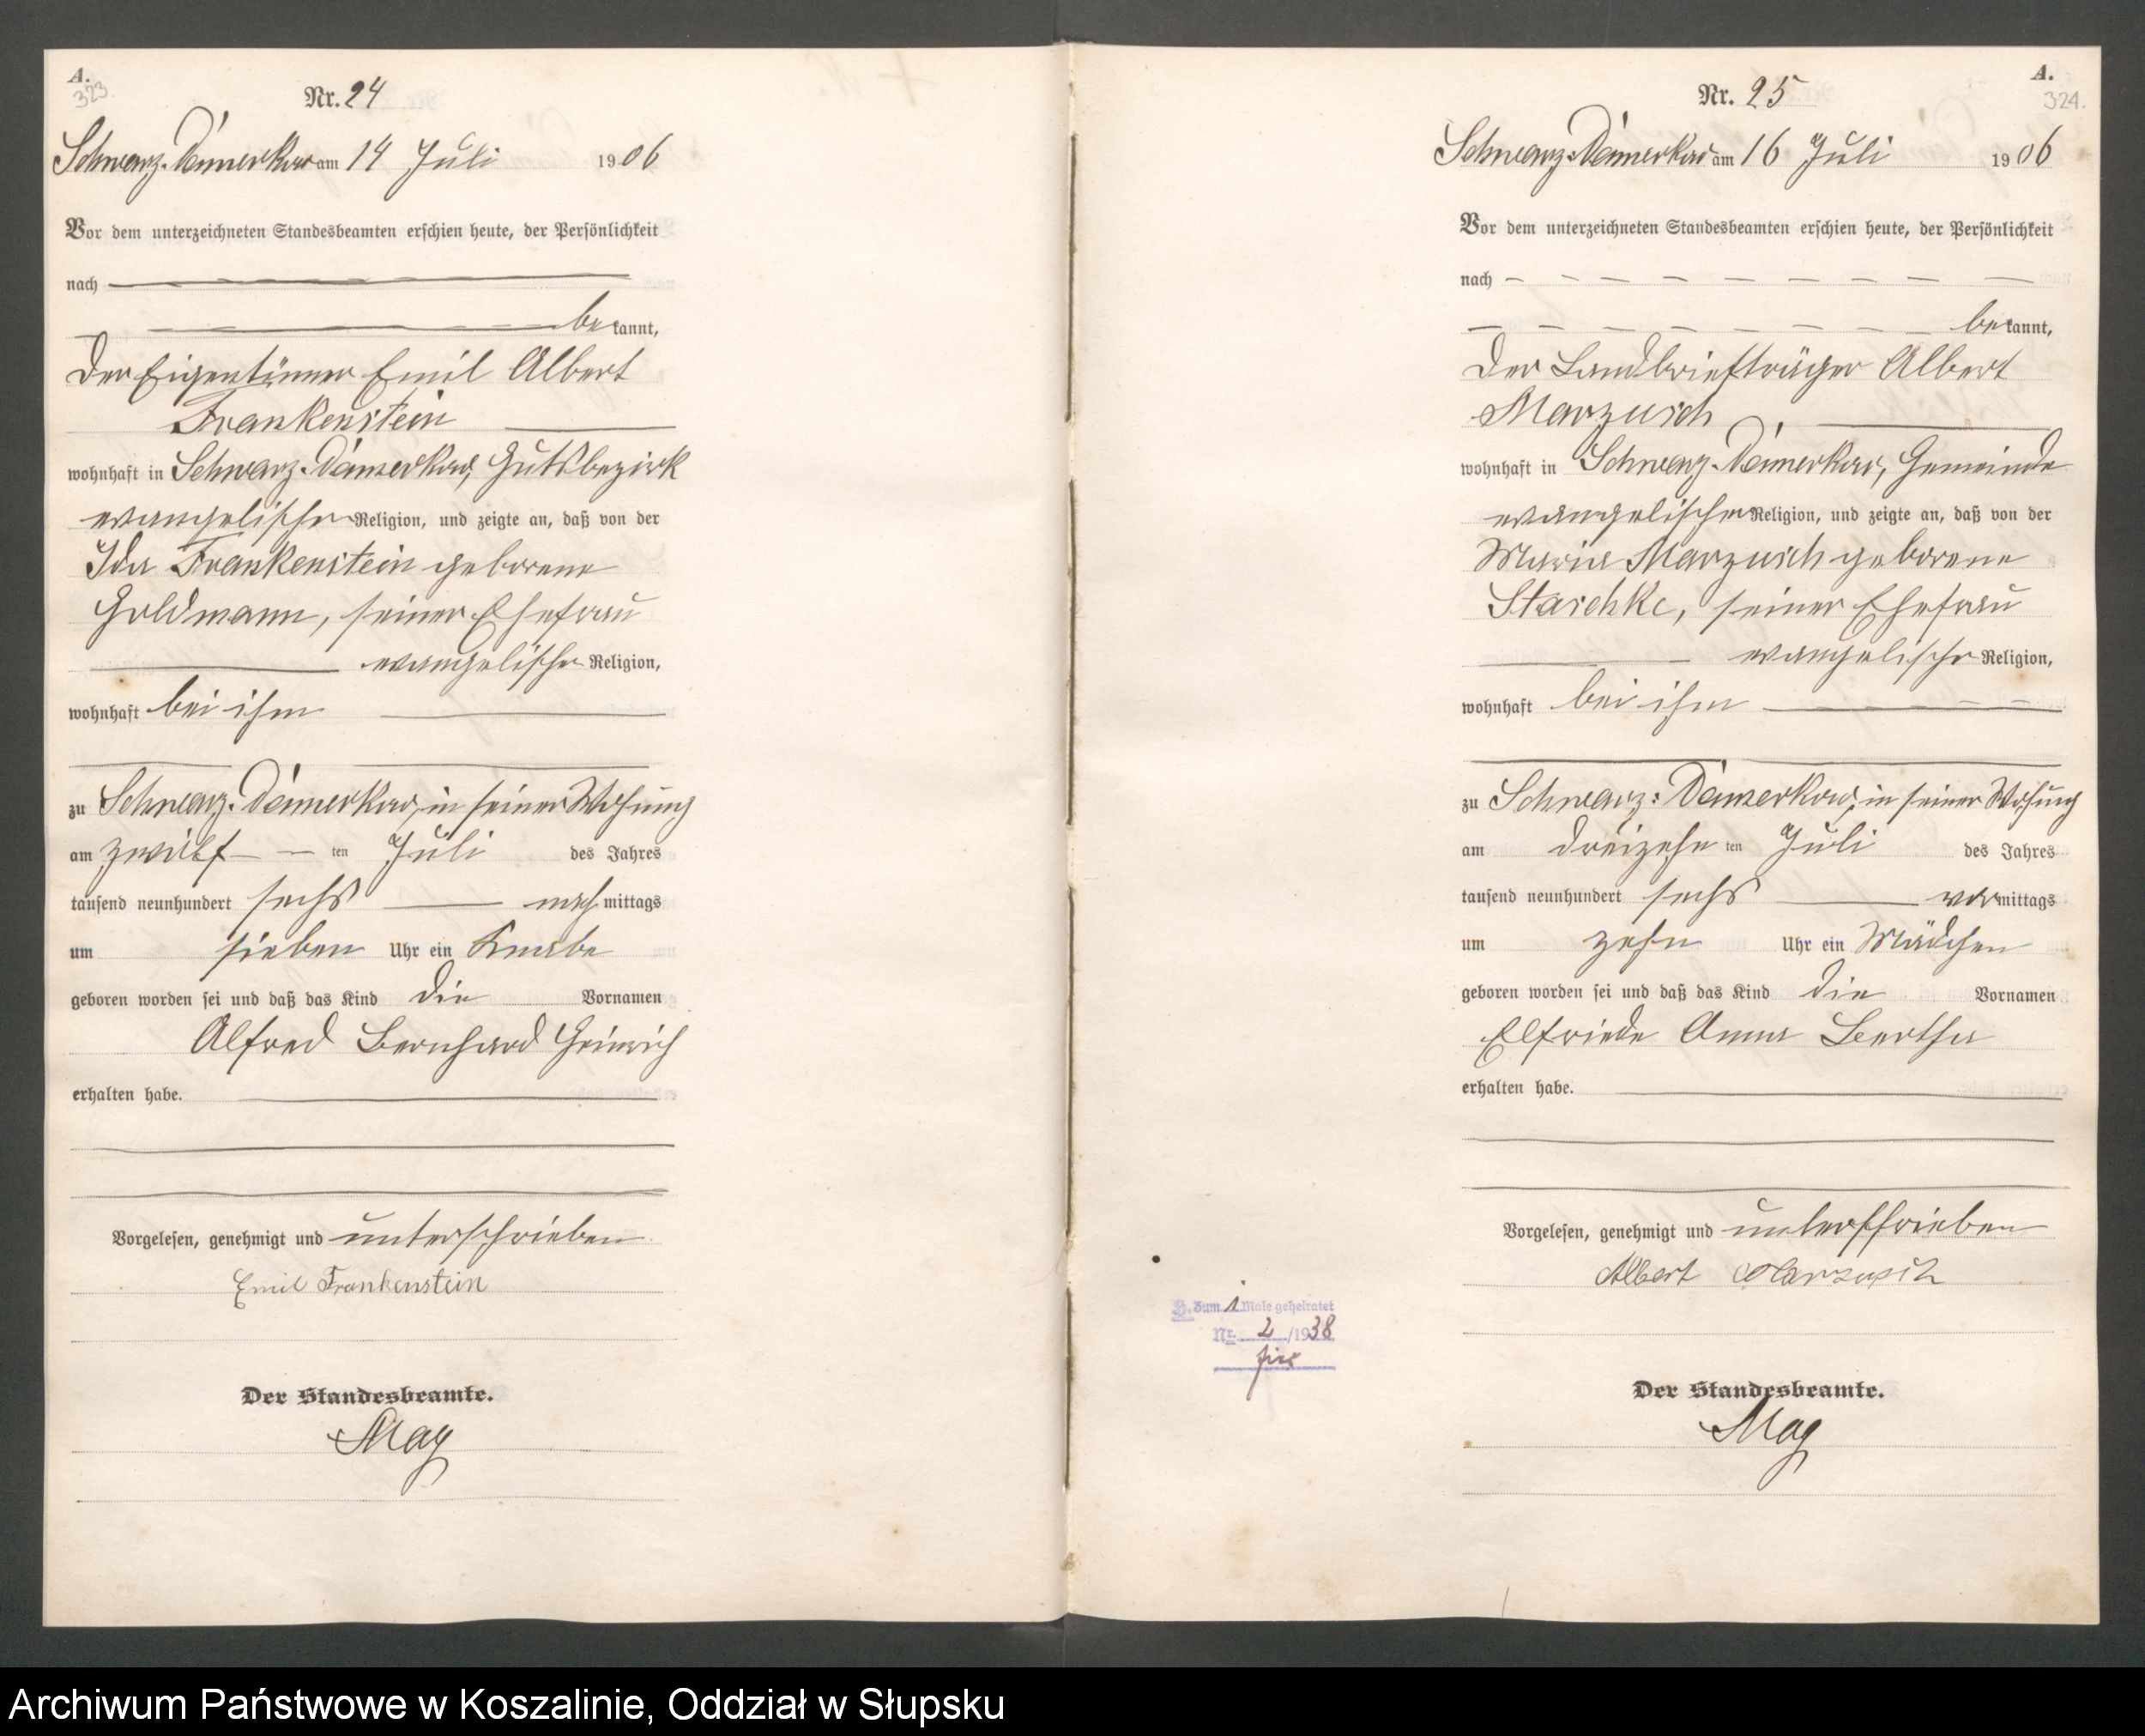 A.
323.
Nr. 24
Schwarz-Damerkow am 14 Juli 1906
Vor dem unterzeichneten Standesbeamten erschien heute, der Persönlichkeit
nach
bekannt,
der Eigentümer Emil Albert
Frankenstein
wohnhaft in Schwarz-Damerkow, Gutsbezirk
evangelischer Religion, und zeigte an, daß von der
Ida Frankenstein geborene
Goldmann, seiner Ehefrau
evangelischer Religion,
wohnhaft bei ihm
zu Schwarz-Damerkow, in seiner Wohnung
am zwölf ten Juli des Jahres
tausend neunhundert sechs nachmittags
um sieben Uhr ein Knabe
geboren worden sei und daß das Kind die Vornamen
Alfred Bernhard Heinrich
erhalten habe.
Vorgelesen, genehmigt und unterschrieben
Emil Frankenstein
Der Standesbeamte.
May
A.
324.
Nr. 25
Schwarz-Damerkow am 16 Juli 1906
Vor dem unterzeichneten Standesbeamten erschien heute, der Persönlichkeit
nach
bekannt,
der Landbriefträger Albert
Marzusch
wohnhaft in Schwarz-Damerkow, Gemeinde
evangelischer Religion, und zeigte an, daß von der
Maria Marzusch geborene
Staschke, seiner Ehefrau
evangelischer Religion,
wohnhaft bei ihm
zu Schwarz-Damerkow, in seiner Wohnung
am dreizehn ten Juli des Jahres
tausend neunhundert sechs vormittags
um zehn Uhr ein Mädchen
geboren worden sei und daß das Kind die Vornamen
Elfriede Anna Bertha
erhalten habe.
Vorgelesen, genehmigt und unterschrieben
Albert Marzusch
Zum 1 Male geheiratet
Nr. 2/1938
Der Standesbeamte.
May
Archiwum Państwowe w Koszalinie, Oddział w Słupsku